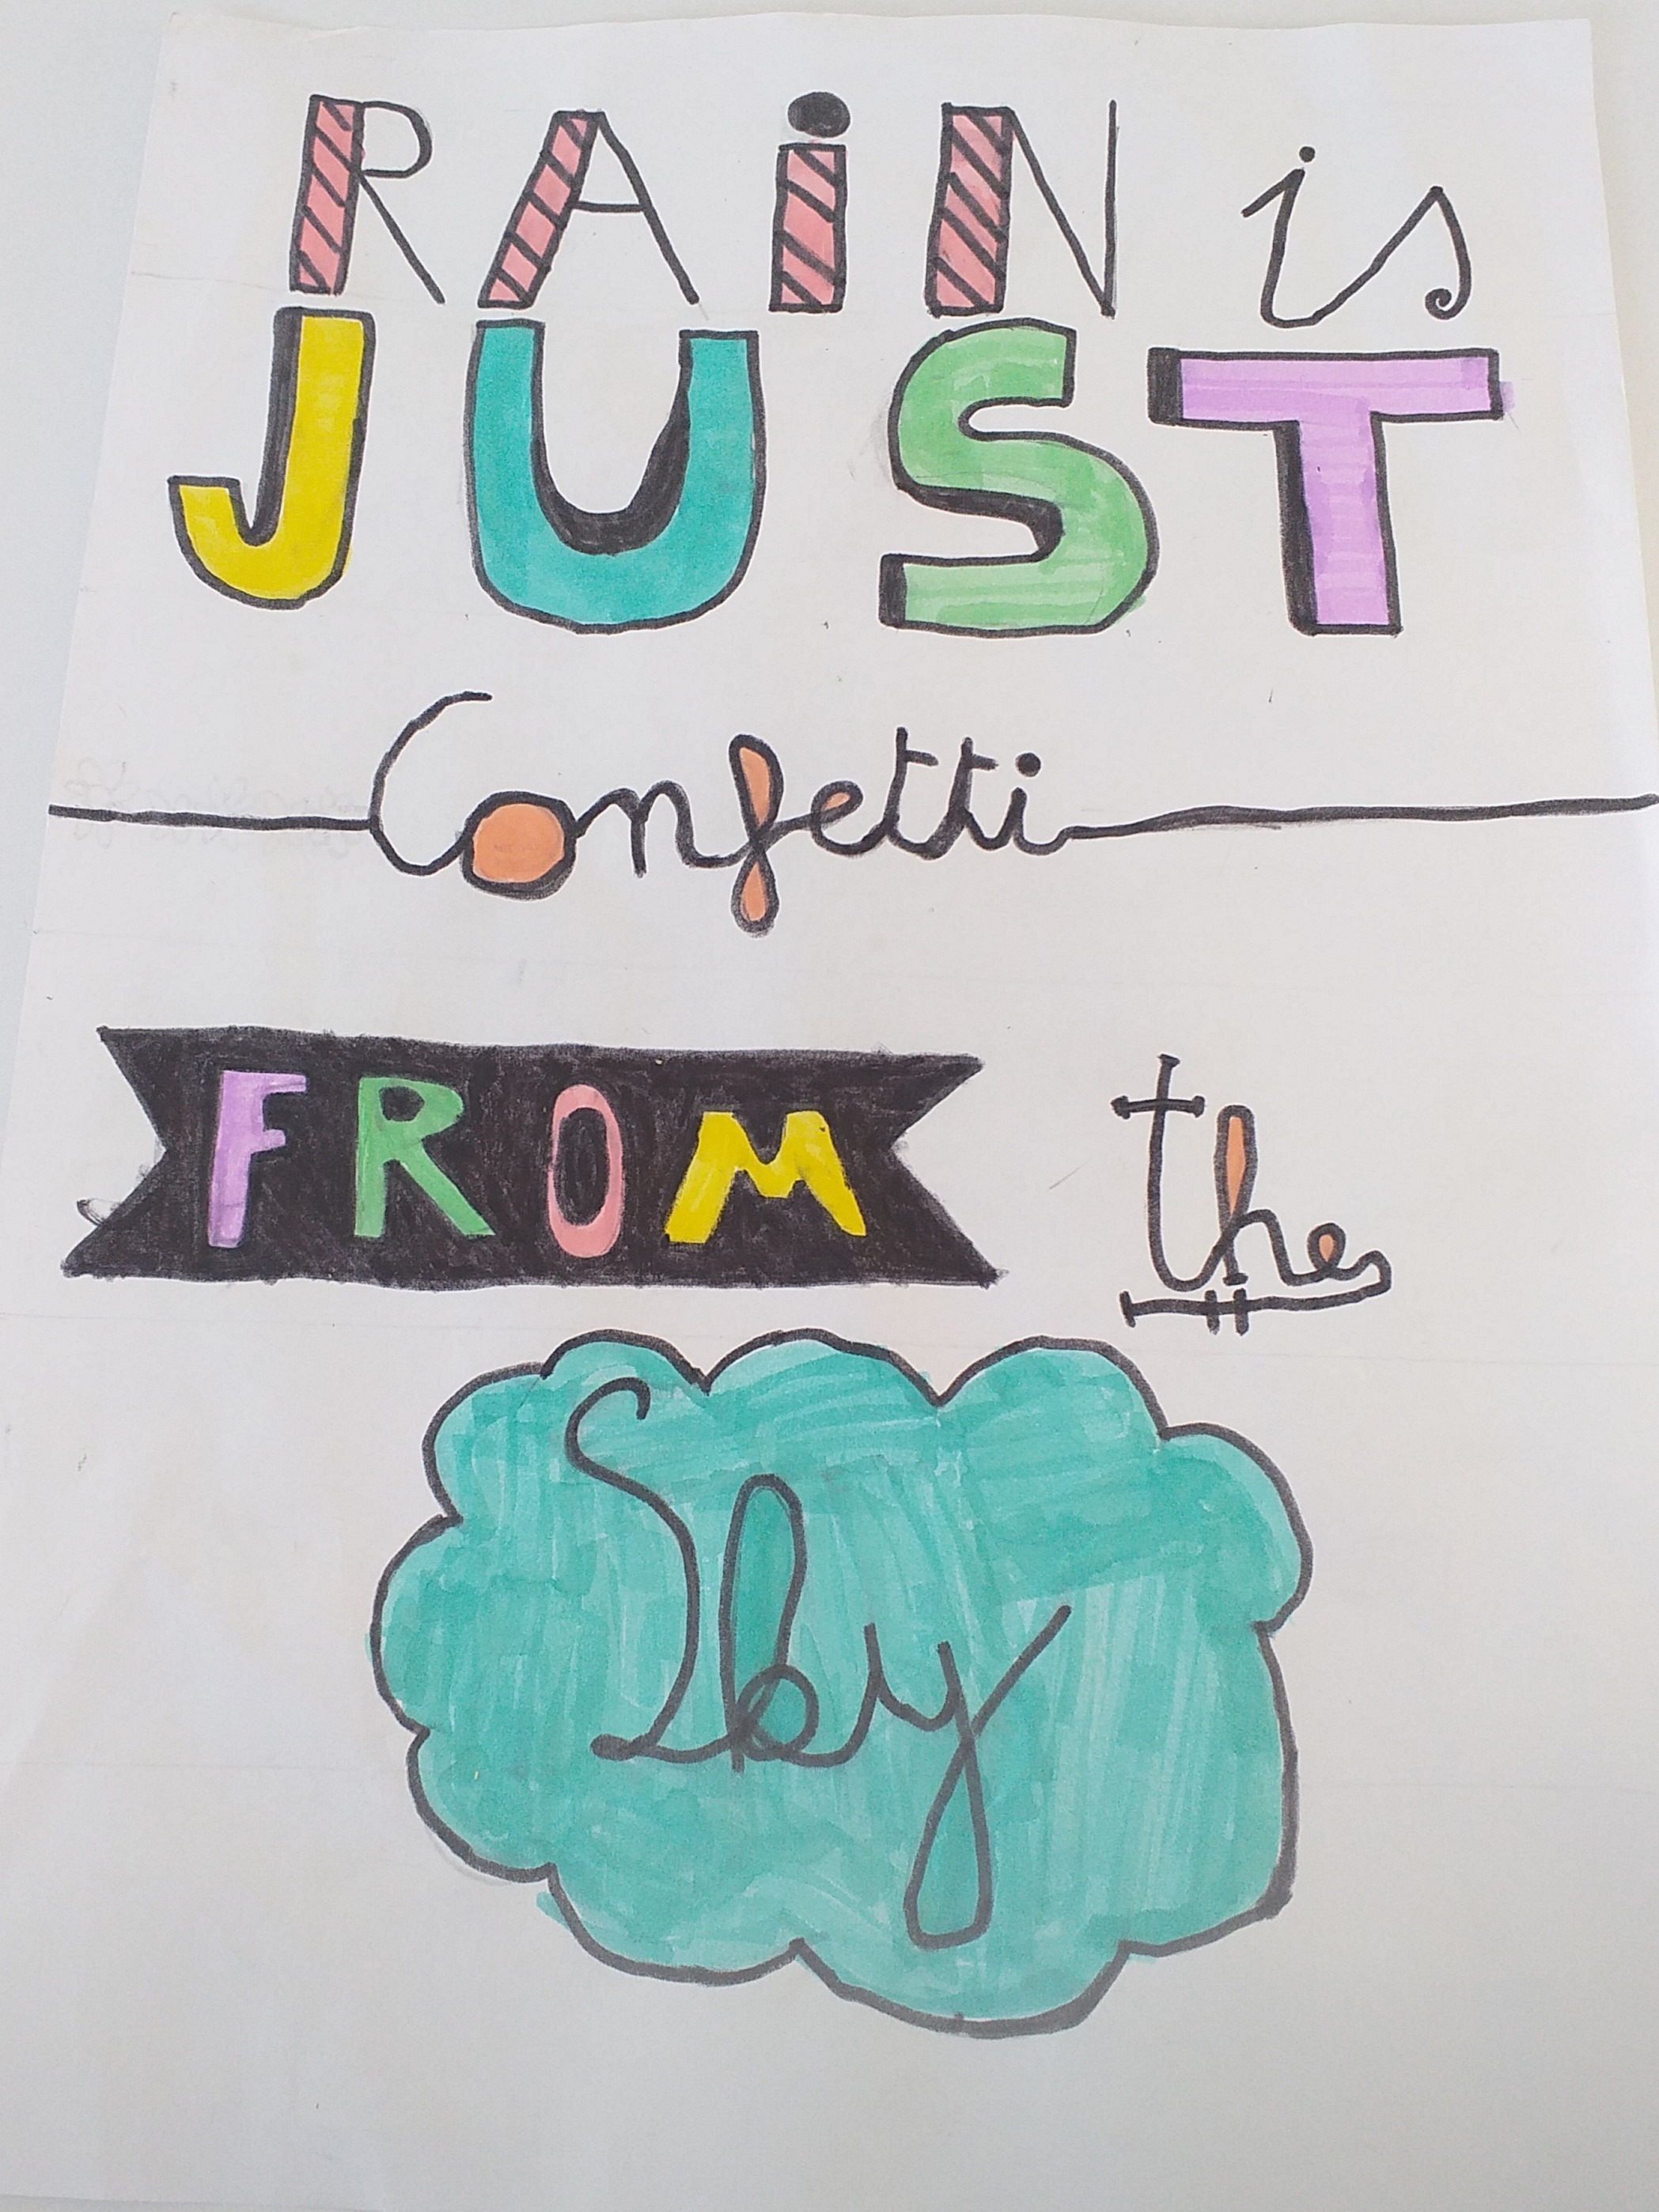 RAiN is
JUST
Confetti
FROM the
Sky